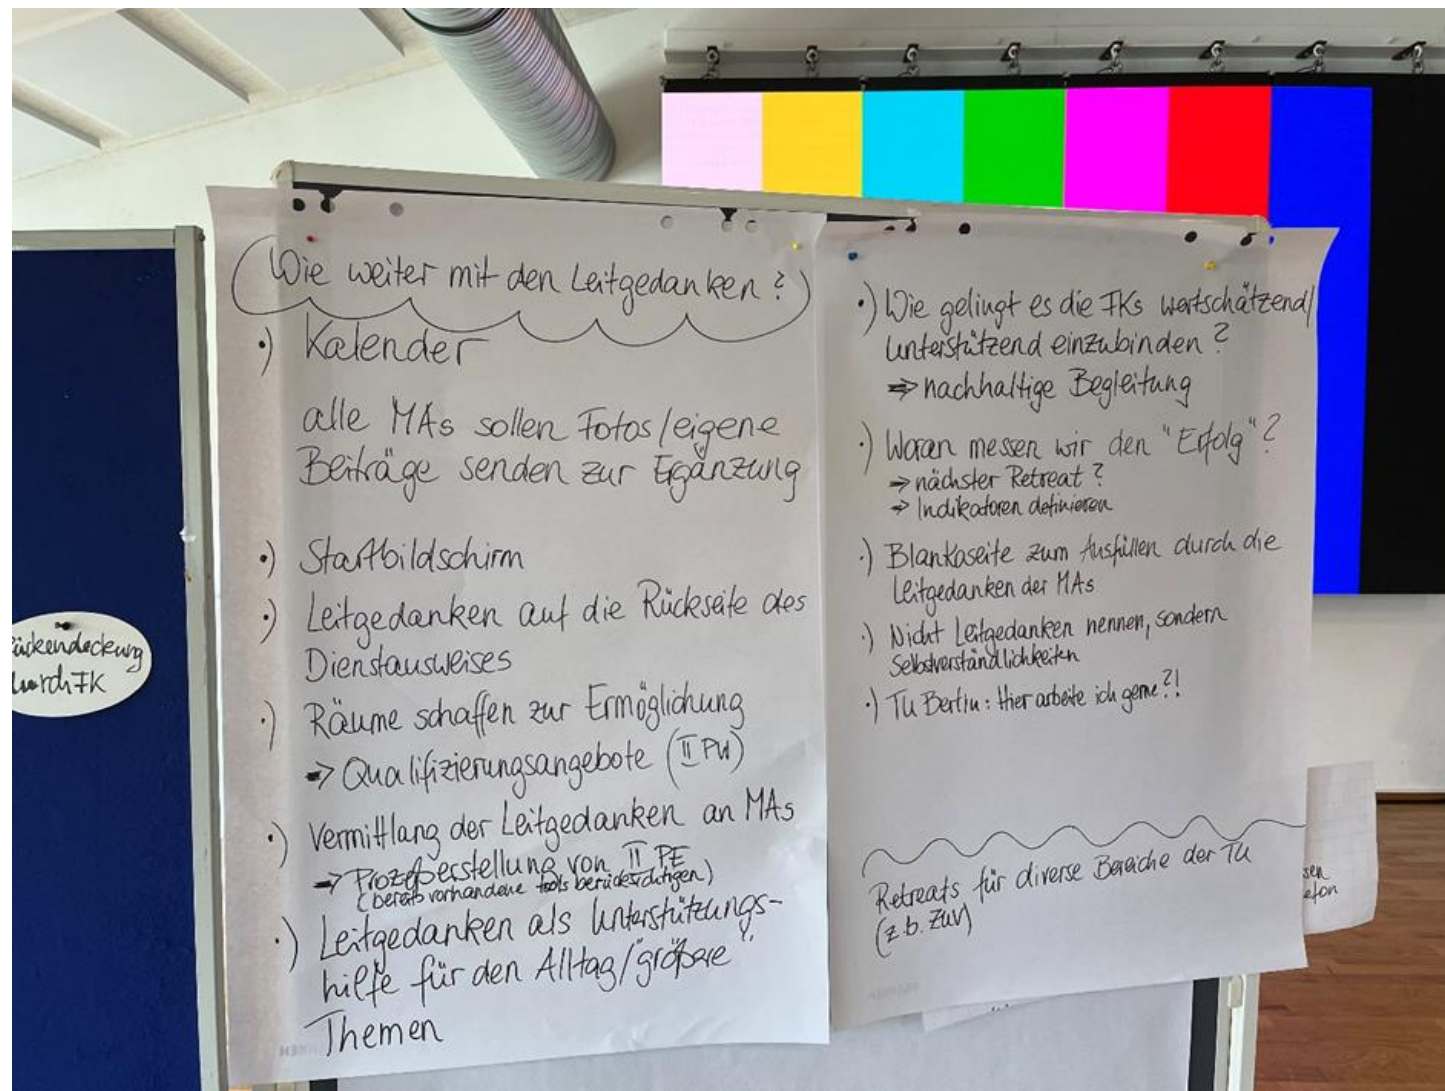 Wie weiter mit den Leitgedanken?
·) Kalender
alle MAs sollen Fotos/eigene
Beiträge senden zur Ergänzung
·) Startbildschirm
·) Leitgedanken auf die Rückseite des
Dienstausweises
·) Räume schaffen zur Ermöglichung
⇒ Qualifizierungsangebote (II PW)
·) Vermittlang der Leitgedanken an MAs
⇒ Prozeßerstellung von II PE
(bereits vorhandene tools berücksichtigen)
·) Leitgedanken als Unterstützungs-
hilfe für den Alltag/"größere"
Themen
·) Wie gelingt es die FKs wertschätzend/
unterstützend einzubinden?
⇒ nachhaltige Begleitung
·) Woran messen wir den "Erfolg"?
⇒ nächster Retreat?
⇒ Indikatoren definieren
·) Blankoseite zum Ausfüllen durch die
Leitgedanken der MAs
·) Nicht Leitgedanken nennen, sondern
Selbstverständlichkeiten
·) TU Berlin: Hier arbeite ich gerne?!
Retreats für diverse Bereiche der TU
(z.b. ZUV)
ückendeckung
durch FK
sen
efon